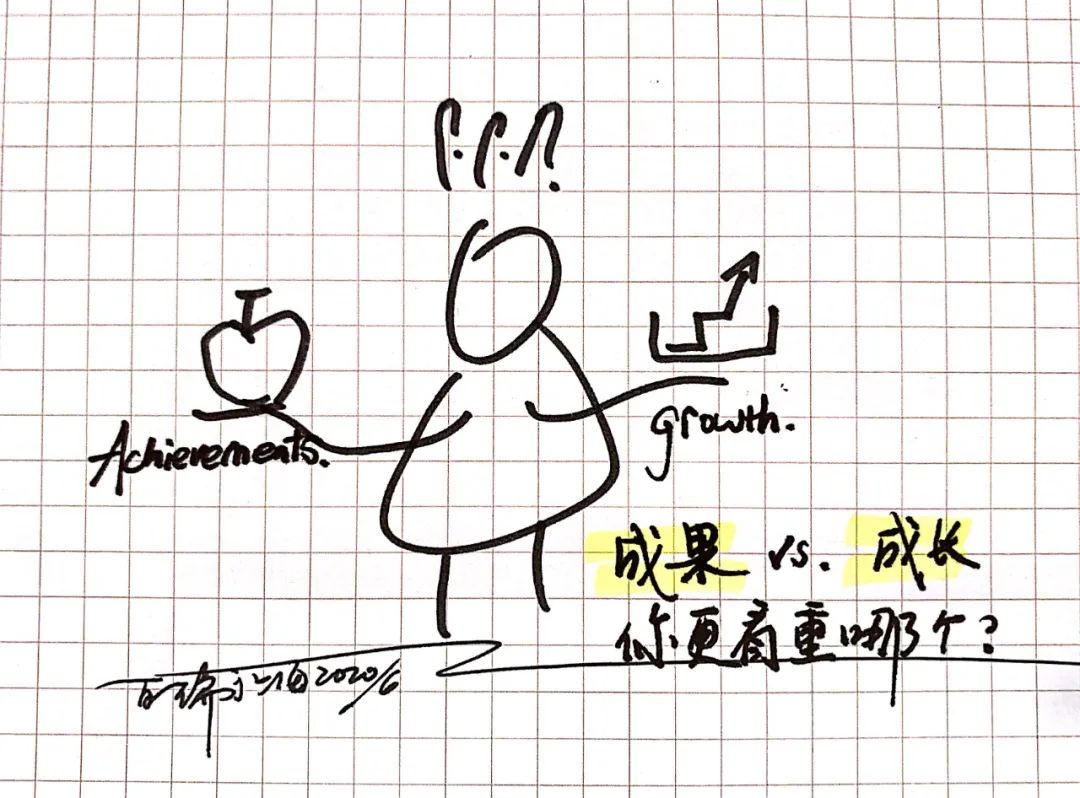 ???
Achievements.
growth.
成果 vs. 成长
你更看重哪个?
2020/6